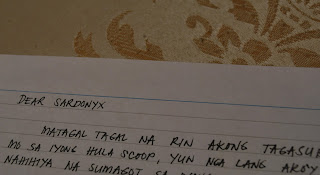 DEAR SARDONYX
MATAGAL TAGAL NA RIN AKONG
MO SA IYONG HULA SCOOP, YUN NGA LANG AKO'Y
NAHIHIYA NA SUMAGOT SA